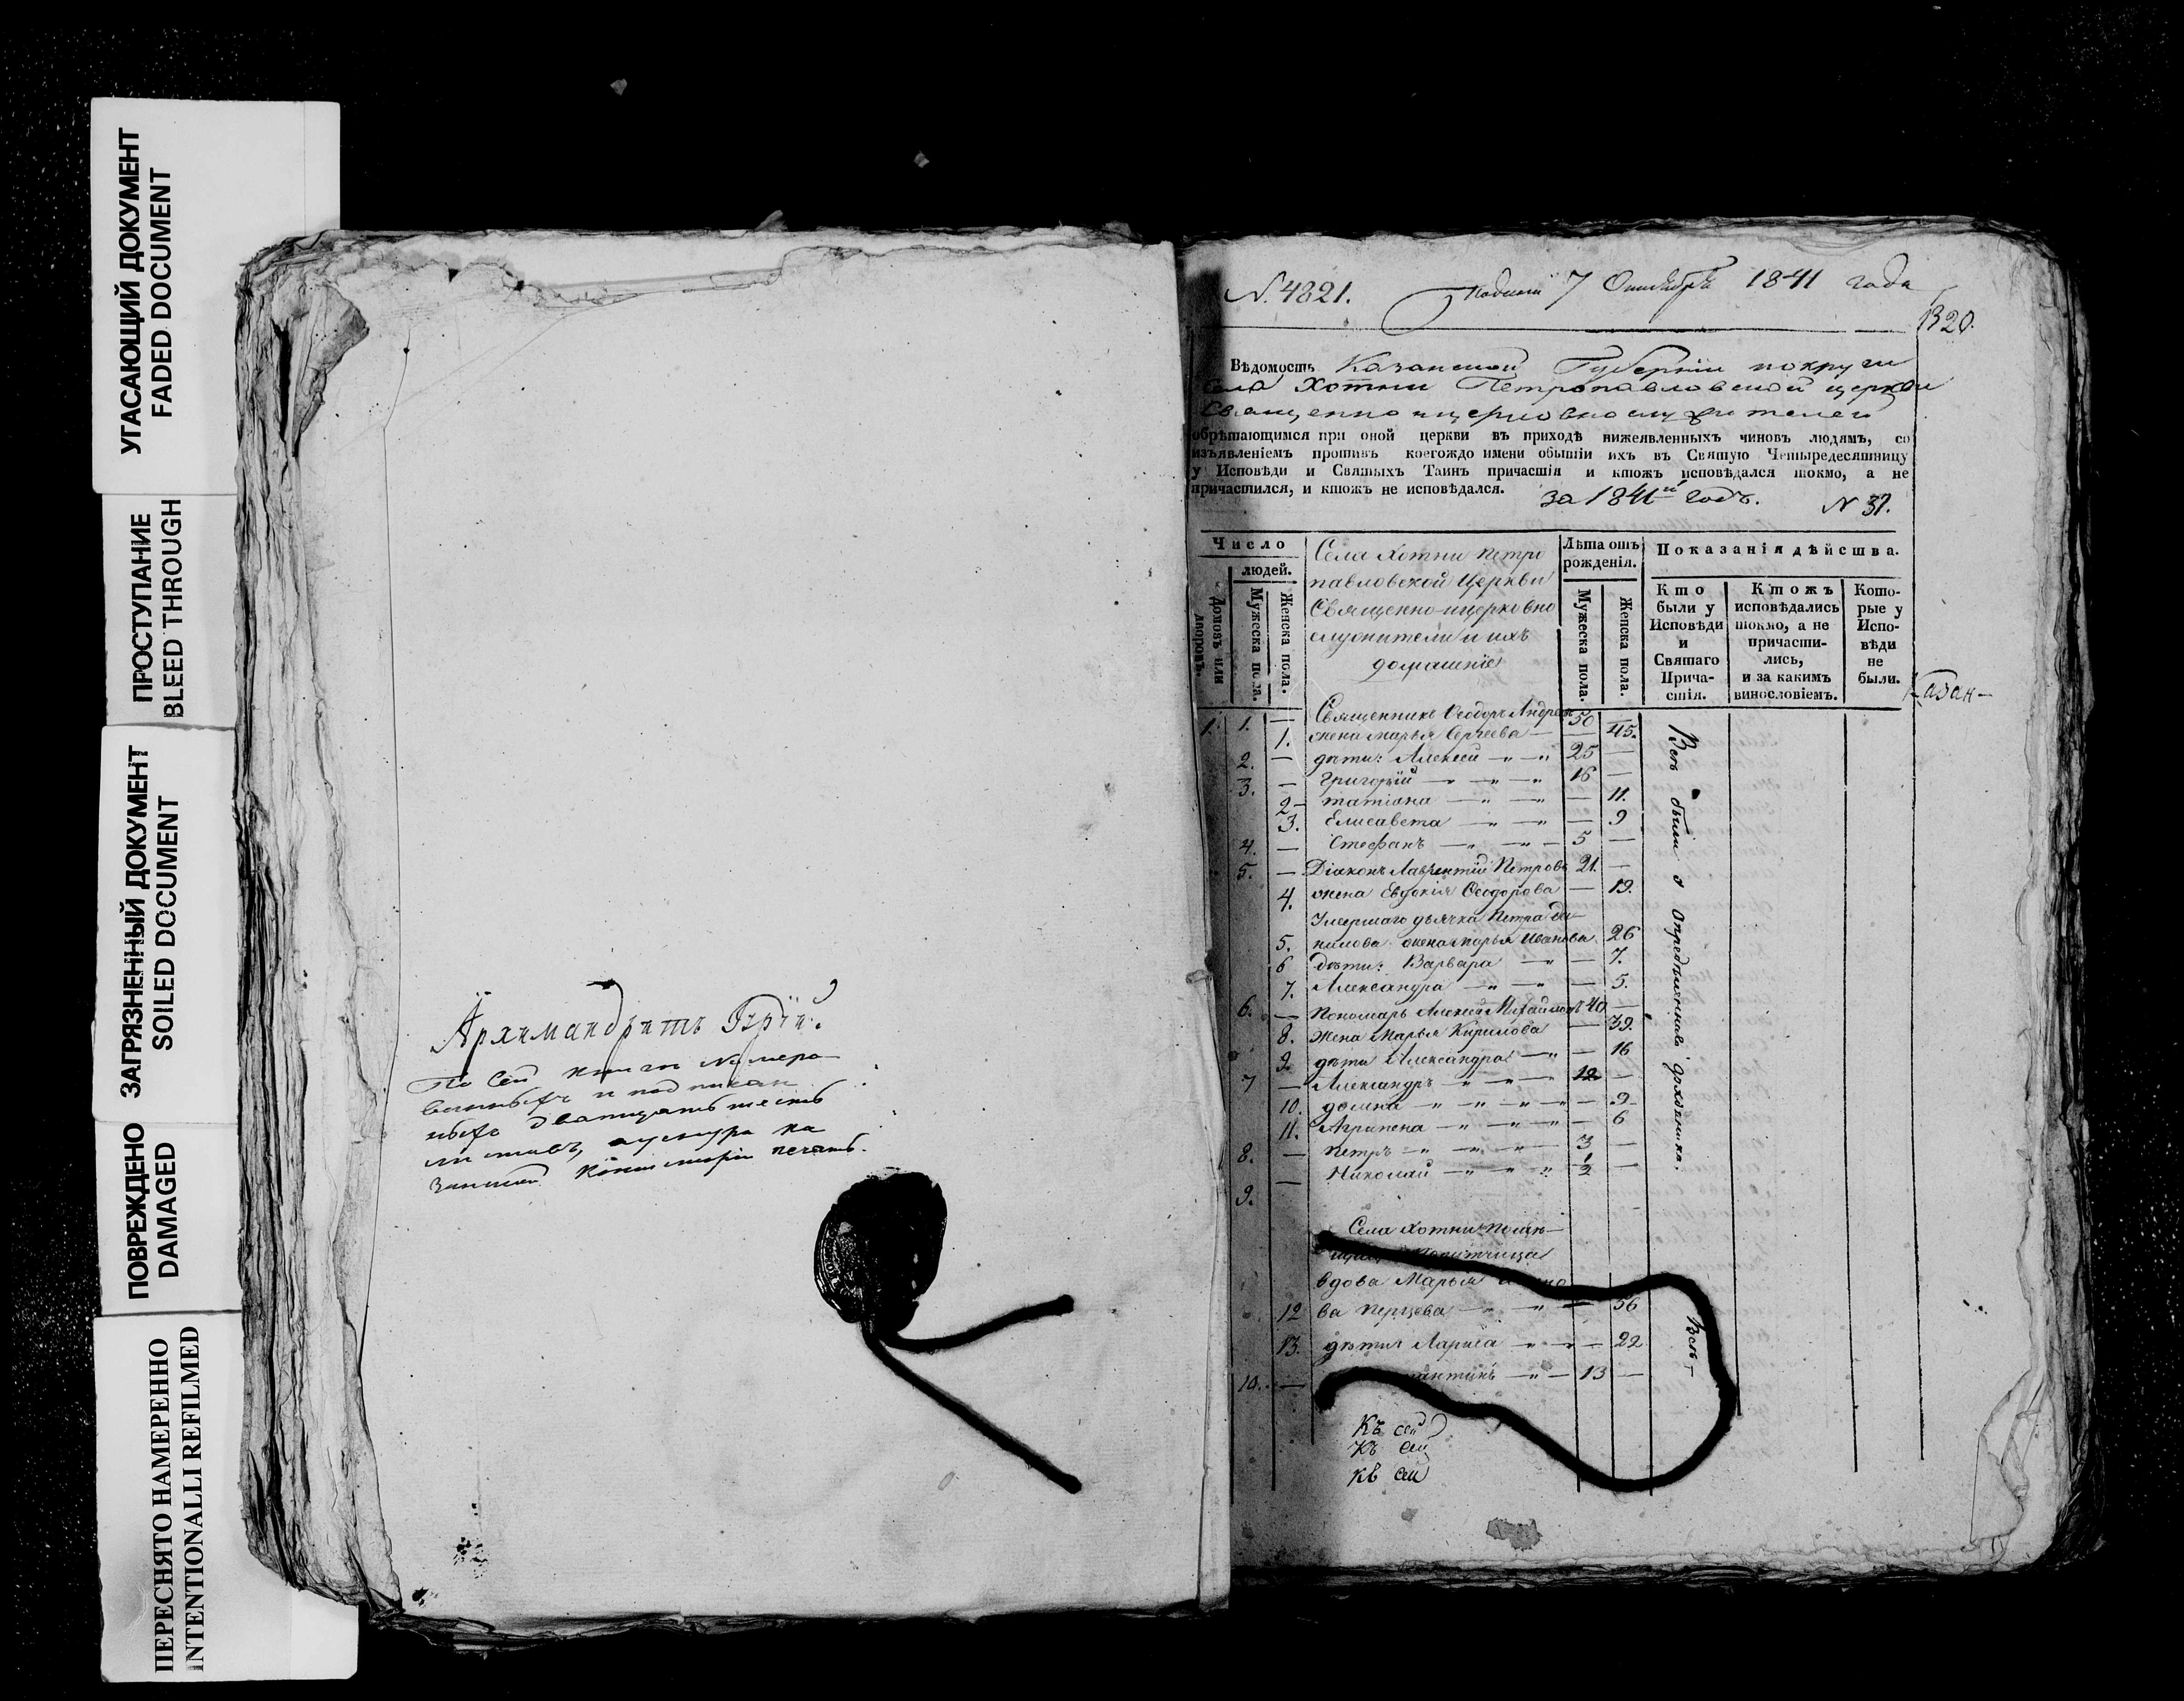 УГАСАЮЩИЙ ДОКУМЕНТ
FADED DOCUMENT
ПРОСТУПАНИЕ
BLEED THROUGH
ЗАГРЯЗНЕННЫЙ ДОКУМЕНТ
SOILED DOCUMENT
ПОВРЕЖДЕНО
DAMAGED
ПЕРЕСНЯТО НАМЕРЕННО
INTENTIONALLI REFILMED
Архимандритъ Гурій.
По сей книги Нумеро
ванныхъ и подписан
ныхъ дватцать шесть
листовъ, а у снура Ка
занской Консисторіи печать.
N. 4821.
7 Октября 1841 года
1320.
Вѣдомость Казанской Губерніи округи
Села Хотни Петропавловской церкви
Священно ицерковнослужителей
обрѣтающимся при оной церкви въ приходѣ нижеявленныхъ чиновъ людямъ, со
изъявленіемъ противъ коегождо имени обытіи ихъ въ Святую Четыредесятницу
у Исповѣди и Святыхъ Таинъ причастія и ктожъ исповѣдался токмо, а не
причастился, и ктожъ не исповѣдался. за 1841й годъ. N 37.
Число
людей.
Домовъ или дворовъ.
Мужеска пола.
Женска пола.
Села Хотни Петро
павловской Церкви
Священно-ицерковно
служители и ихъ
домашніе
Лѣта отъ
рожденія.
Мужеска пола.
Женска пола.
Показанія дѣйства.
Кто
были у
Исповѣди
и
Святаго
Прича-
стія.
Ктожъ
исповѣдались
токмо, а не
причасти-
лись,
и за какимъ
винословіемъ.
Кото-
рые у
Испо-
вѣди
не
были.
Казан-
1. 1. — Священникъ Ѳеодоръ Андреев 50 —
1. жена Марья Сергеева — — 45.
2. — дѣти: Алексей — 25 —
3. — Григорій — 16 —
2 — татіана — — 11.
3. Елисавета — — 9
4. — Стефанъ — 5 —
5. — Діаконъ Лаврентій Петровъ 21. —
4. жена Евдокія Ѳеодорова — 19.
Умершаго дьячка Петра Да
5. нилова жена Марья Иванова 26
6 дѣти: Варвара — — 7.
7. Александра — — 5.
6. — Пономарь Алексей Михайловъ 40 —
8. Жена Марья Кирилова — 39.
9. дѣти Александра — — 16
7 — Александръ — 12 —
10. домна — — 9
11. Агрипена — — 6
8. — Петръ — 3 —
9. — Николай — 1/2 —
Всѣ были
Села Хотни
вдова Марья
12 ва — 56
13. дѣти Лариса — — 22
10. — — 13 —
Всѣ —
Къ сей
Къ сей
къ сей